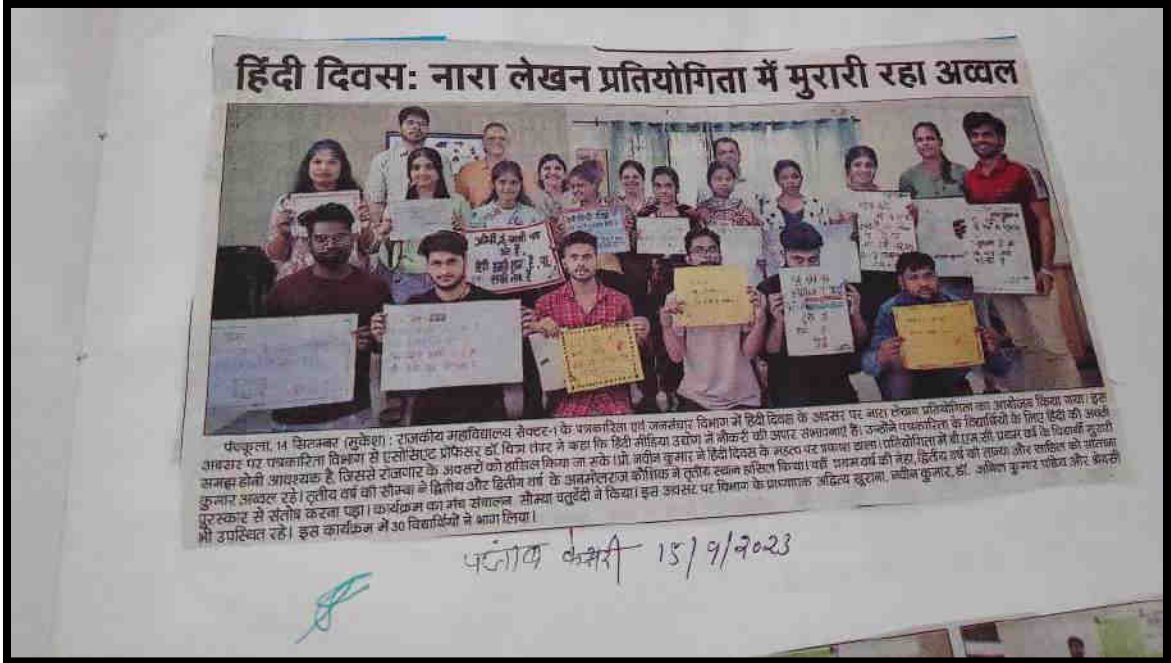 हिंदी दिवस: नारा लेखन प्रतियोगिता में मुरारी रहा अव्वल
पंचकूला, 14 सितम्बर (मुकेश): राजकीय महाविद्यालय सेक्टर-1 के पत्रकारिता एवं जनसंचार विभाग में हिंदी दिवस के अवसर पर नारा लेखन प्रतियोगिता का आयोजन किया गया। इस
अवसर पर पत्रकारिता विभाग से एसोसिएट प्रोफेसर डॉ. चित्रा तंवर ने कहा कि हिंदी मीडिया उद्योग में नौकरी की अपार संभावनाएं हैं। उन्होंने पत्रकारिता के विद्यार्थियों के लिए हिंदी की अच्छी
समझ होनी आवश्यक है, जिससे रोजगार के अवसरों को हासिल किया जा सके। प्रो. नवीन कुमार ने हिंदी दिवस के महत्व पर प्रकाश डाला। प्रतियोगिता में बी.एम.सी. प्रथम वर्ष के विद्यार्थी मुरारी
कुमार अव्वल रहे। तृतीय वर्ष की सौम्या ने द्वितीय और द्वितीय वर्ष के अनमोलराज कौशिक ने तृतीय स्थान हासिल किया। वहीं प्रथम वर्ष की नेहा, द्वितीय वर्ष की तान्या और साहिल को सांत्वना
पुरस्कार से संतोष करना पड़ा। कार्यक्रम का मंच संचालन सौम्या चतुर्वेदी ने किया। इस अवसर पर विभाग के प्राध्यापक अद्वित्य खुराना, नवीन कुमार, डॉ. अनिल कुमार पांडेय और श्रेयसी
भी उपस्थित रहे। इस कार्यक्रम में 30 विद्यार्थियों ने भाग लिया।
पंजाब केसरी 15/9/2023